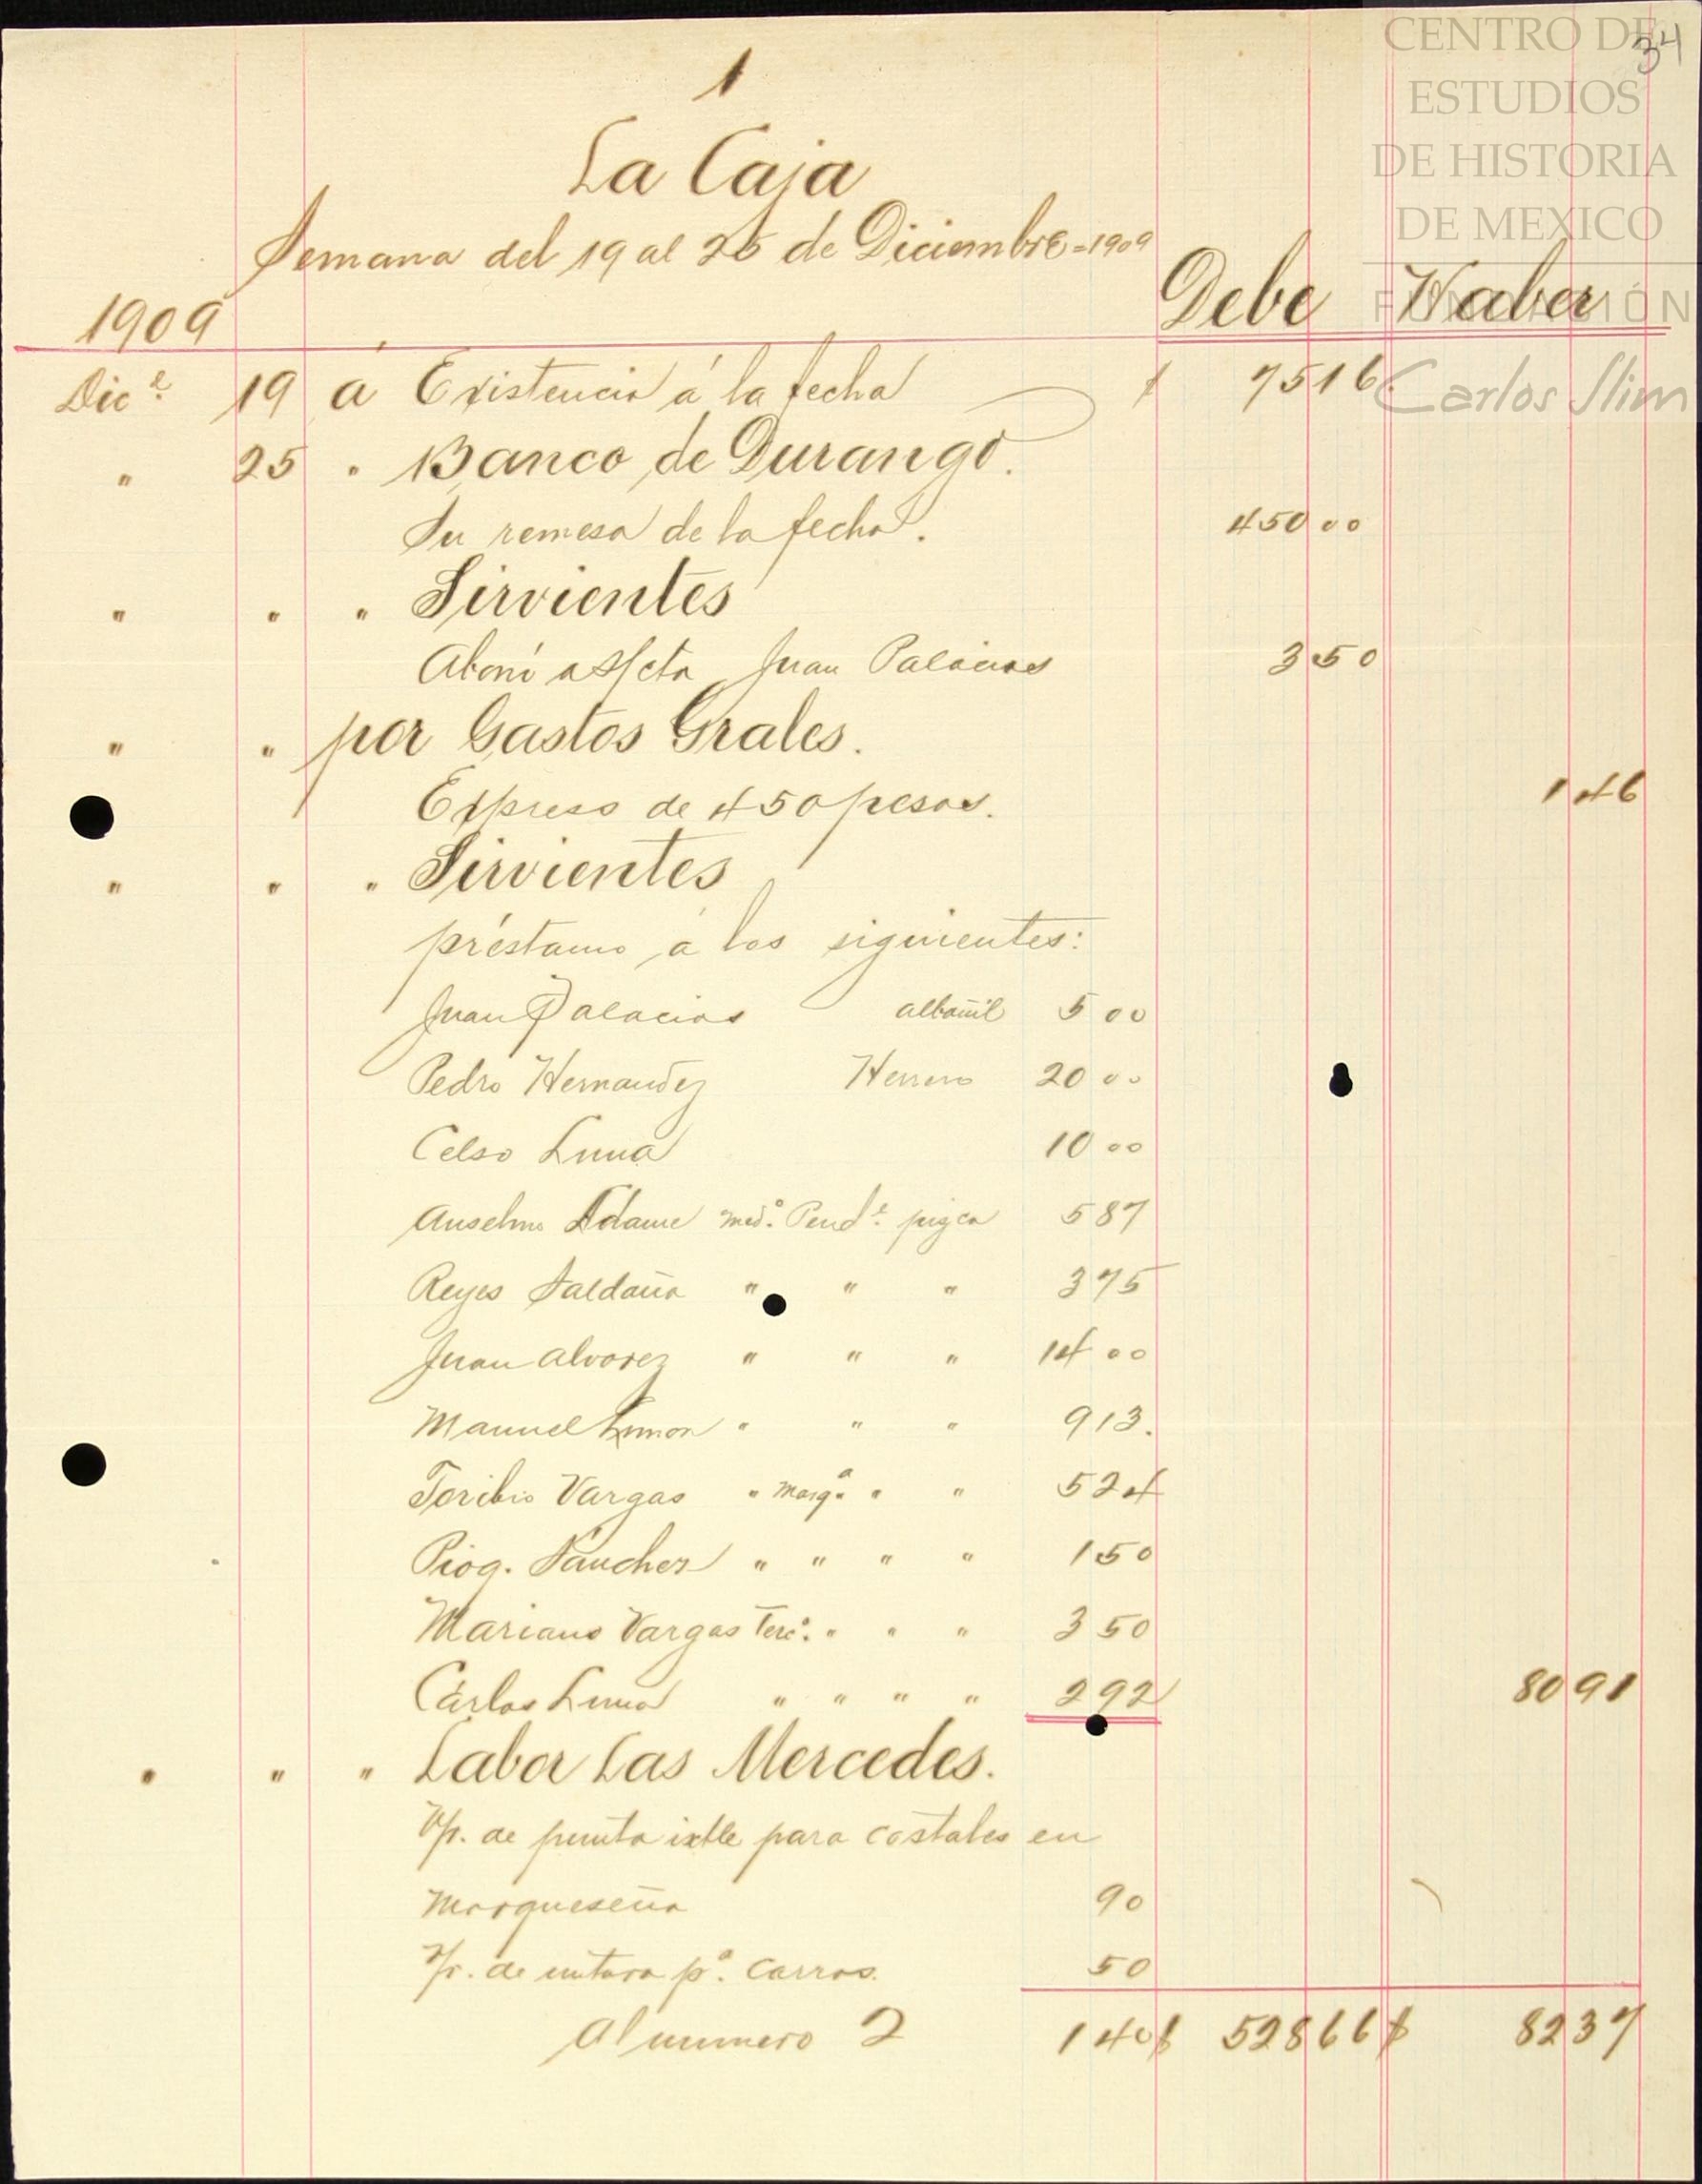 34
CENTRO DE
ESTUDIOS
DE HISTORIA
DE MEXICO
FUNDACIÓN
Carlos Slim
1
La Caja
Semana del 19 al 25 de Diciembre=1909
1909 Debe Haber
Dice. 19 á Existencia á la fecha $ 75 16
" 25 " Banco de Durango.
Su remesa de la fecha. 450 00
" " " Sirvientes
Abonó a s/cta Juan Palacios 3 50
" " por Gastos Grales.
Expreso de 450 pesos. 1 46
" " " Sirvientes
préstamo á los siguientes:
Juan Palacios albañil 5 00
Pedro Hernandez Herrero 20 00
Celso Luna 10 00
Anselmo Adame medo. Pende. pizca 5 87
Reyes Saldaña " " " 3 75
Juan Alvarez " " " 14 00
Manuel Limon " " " 9 13.
Toribio Vargas " Marqa. " " 5 24
Piog. Sánchez " " " " 1 50
Mariano Vargas Terco. " " " 3 50
Cárlos Luna " " " " 2 92 80 91
" " " Labor Las Mercedes.
V/r. de punta ixtle para costales en
Marqueseña 90
V/r. de untura pa. carros. 50
Al numero 2 1 40 $ 528 66 $ 82 37